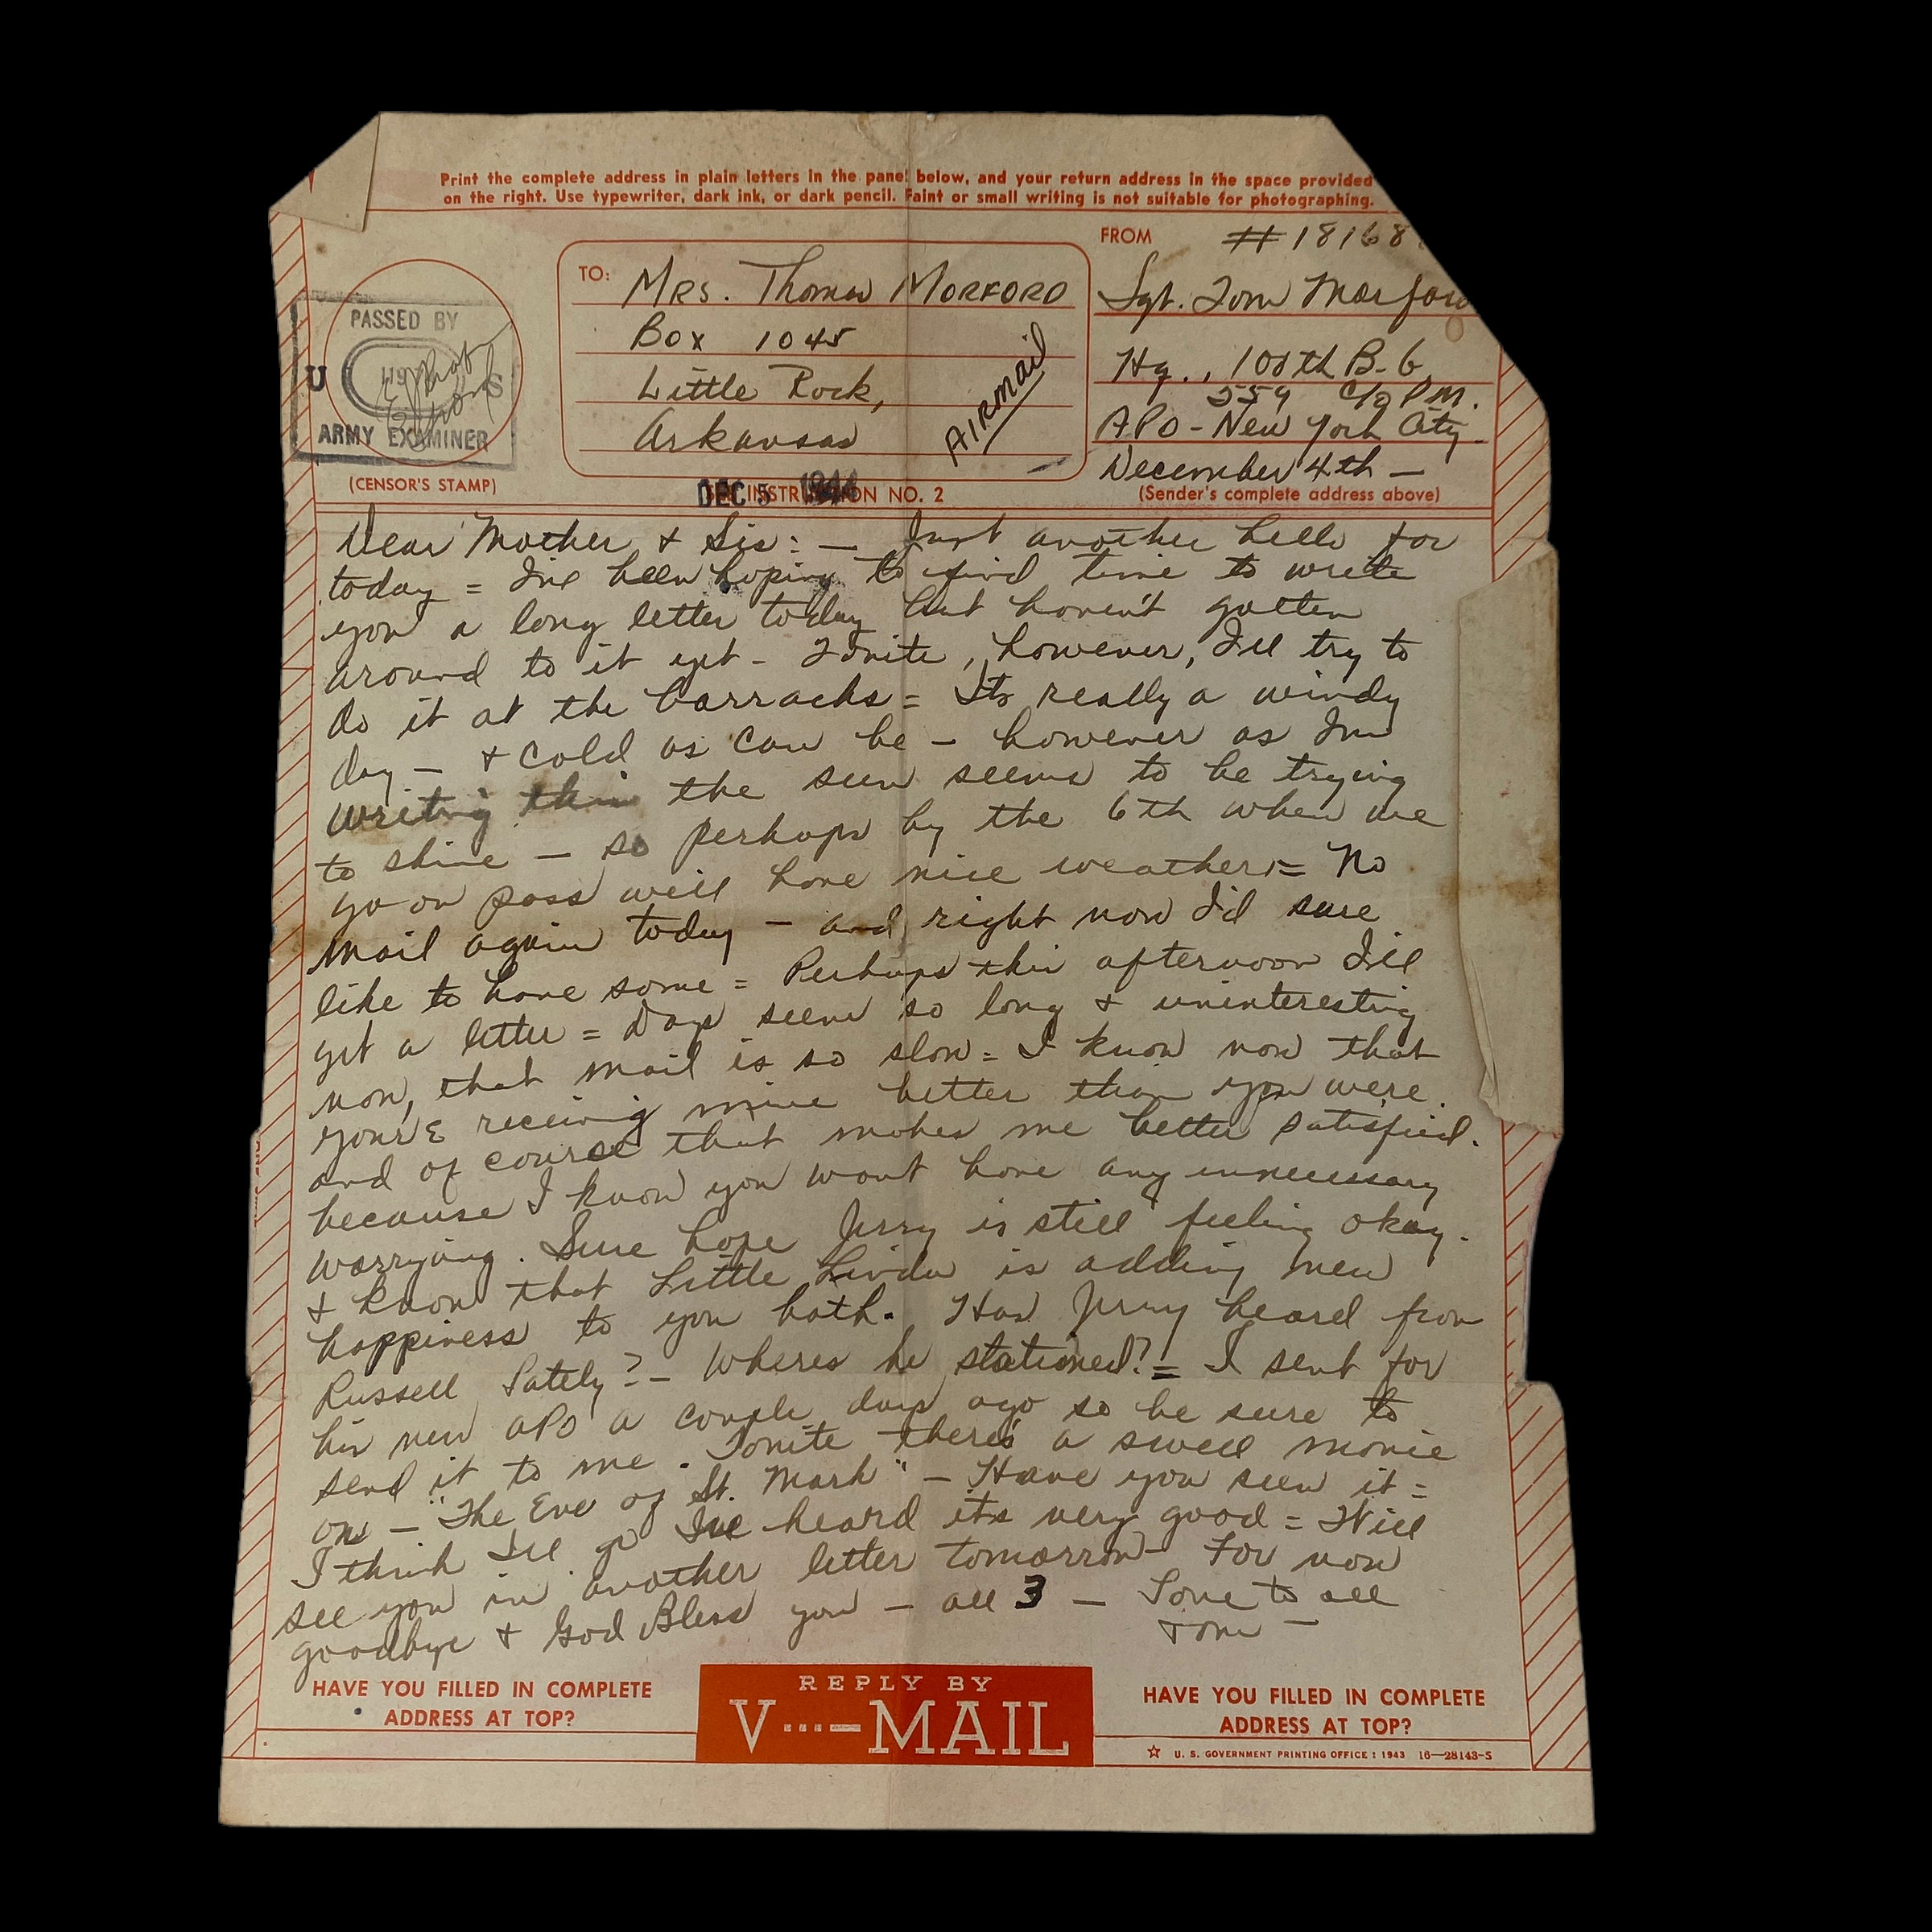 Print the complete address in plain letters in the panel below, and your return address in the space provided
on the right. Use typewriter, dark ink, or dark pencil. Faint or small writing is not suitable for photographing.
FROM
#18168
TO:
Mrs. Thomas MORFORD
Box 1045
Little Rock,
Arkansas
AIRMAIL
Sgt. Tom Morford
Hq., 100th B-G
559 C/o P.M.
APO - New York City
December 4th —
(Sender's complete address above)
PASSED BY
U S
ARMY EXAMINER
(CENSOR'S STAMP)
DEC 5 1944
SEE INSTRUCTION NO. 2
Dear Mother & Sis: — Just another hello for
today = I've been hoping to find time to write
you a long letter today but haven't gotten
around to it yet - Tonite, however, I'll try to
do it at the barracks = Its really a windy
day — & cold as can be — however as Im
writing this the sun seems to be trying
to shine — so perhaps by the 6th when we
go on pass we'll have nice weather = No
mail again today — and right now I'd sure
like to have some = Perhaps this afternoon I'll
get a letter = Days seem so long & uninteresting
now, that mail is so slow = I know now that
you're receiving mine better than you were.
and of course that makes me better satisfied.
because I know you wont have any unnecessary
worrying. Sure hope Jerry is still feeling okay.
& know that Little Linda is adding new
happiness to you both. Has Jerry heard from
Russell lately? — Wheres he stationed? = I sent for
his new APO a couple days ago so be sure to
send it to me. Tonite there's a swell movie
on — "The Eve of St. Mark" — Have you seen it =
I think I'll go I've heard its very good = Will
see you in another letter tomorrow — For now
goodbye & God Bless you — all 3 — Love to all
Tom —
HAVE YOU FILLED IN COMPLETE
ADDRESS AT TOP?
REPLY BY
V···—MAIL
HAVE YOU FILLED IN COMPLETE
ADDRESS AT TOP?
☆ U. S. GOVERNMENT PRINTING OFFICE : 1943 16—28143-5